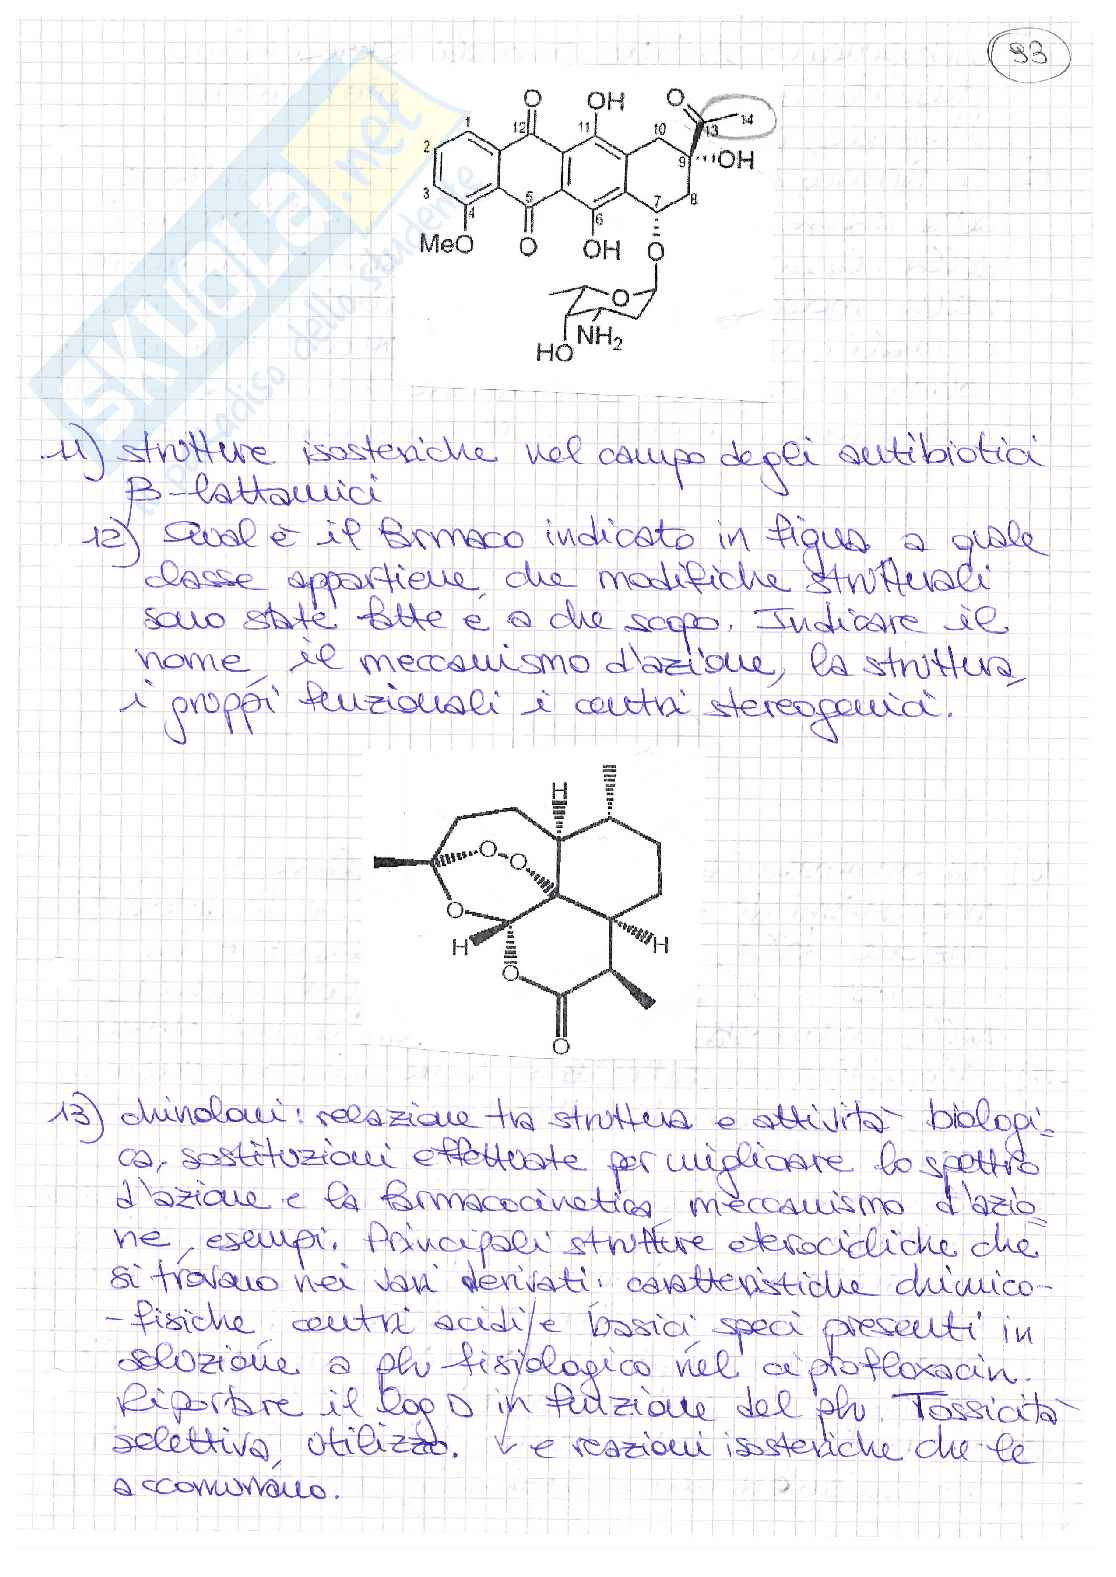 93
O
OH
O
12
11
10
13
14
1
2
9
OH
3
8
4
5
6
7
MeO
O
OH
O
O
NH2
HO
SKUOLA.net
il paradiso dello studente
11) strutture isosteriche nel campo degli antibiotici
β-lattamici
12) Qual è il farmaco indicato in figura a quale
classe appartiene, che modifiche strutturali
sono state fatte e a che scopo. Indicare il
nome, il meccanismo d'azione, la struttura,
i gruppi funzionali i centri stereogenici.
H
O
O
O
H
H
O
O
13) chinoloni: relazione tra struttura e attività biologi-
ca, sostituzioni effettuate per migliorare lo spettro
d'azione e la farmacocinetica, meccanismo d'azio
ne, esempi. Principali strutture eterocicliche che
si trovano nei vari derivati: caratteristiche chimico-
-fisiche, centri acidi/e basici, speci presenti in
soluzione a ph fisiologico nel ciprofloxacin.
Riportare il log D in funzione del ph. Tossicità
selettiva, utilizzo. ↓ e reazioni isosteriche che le
accomunano.